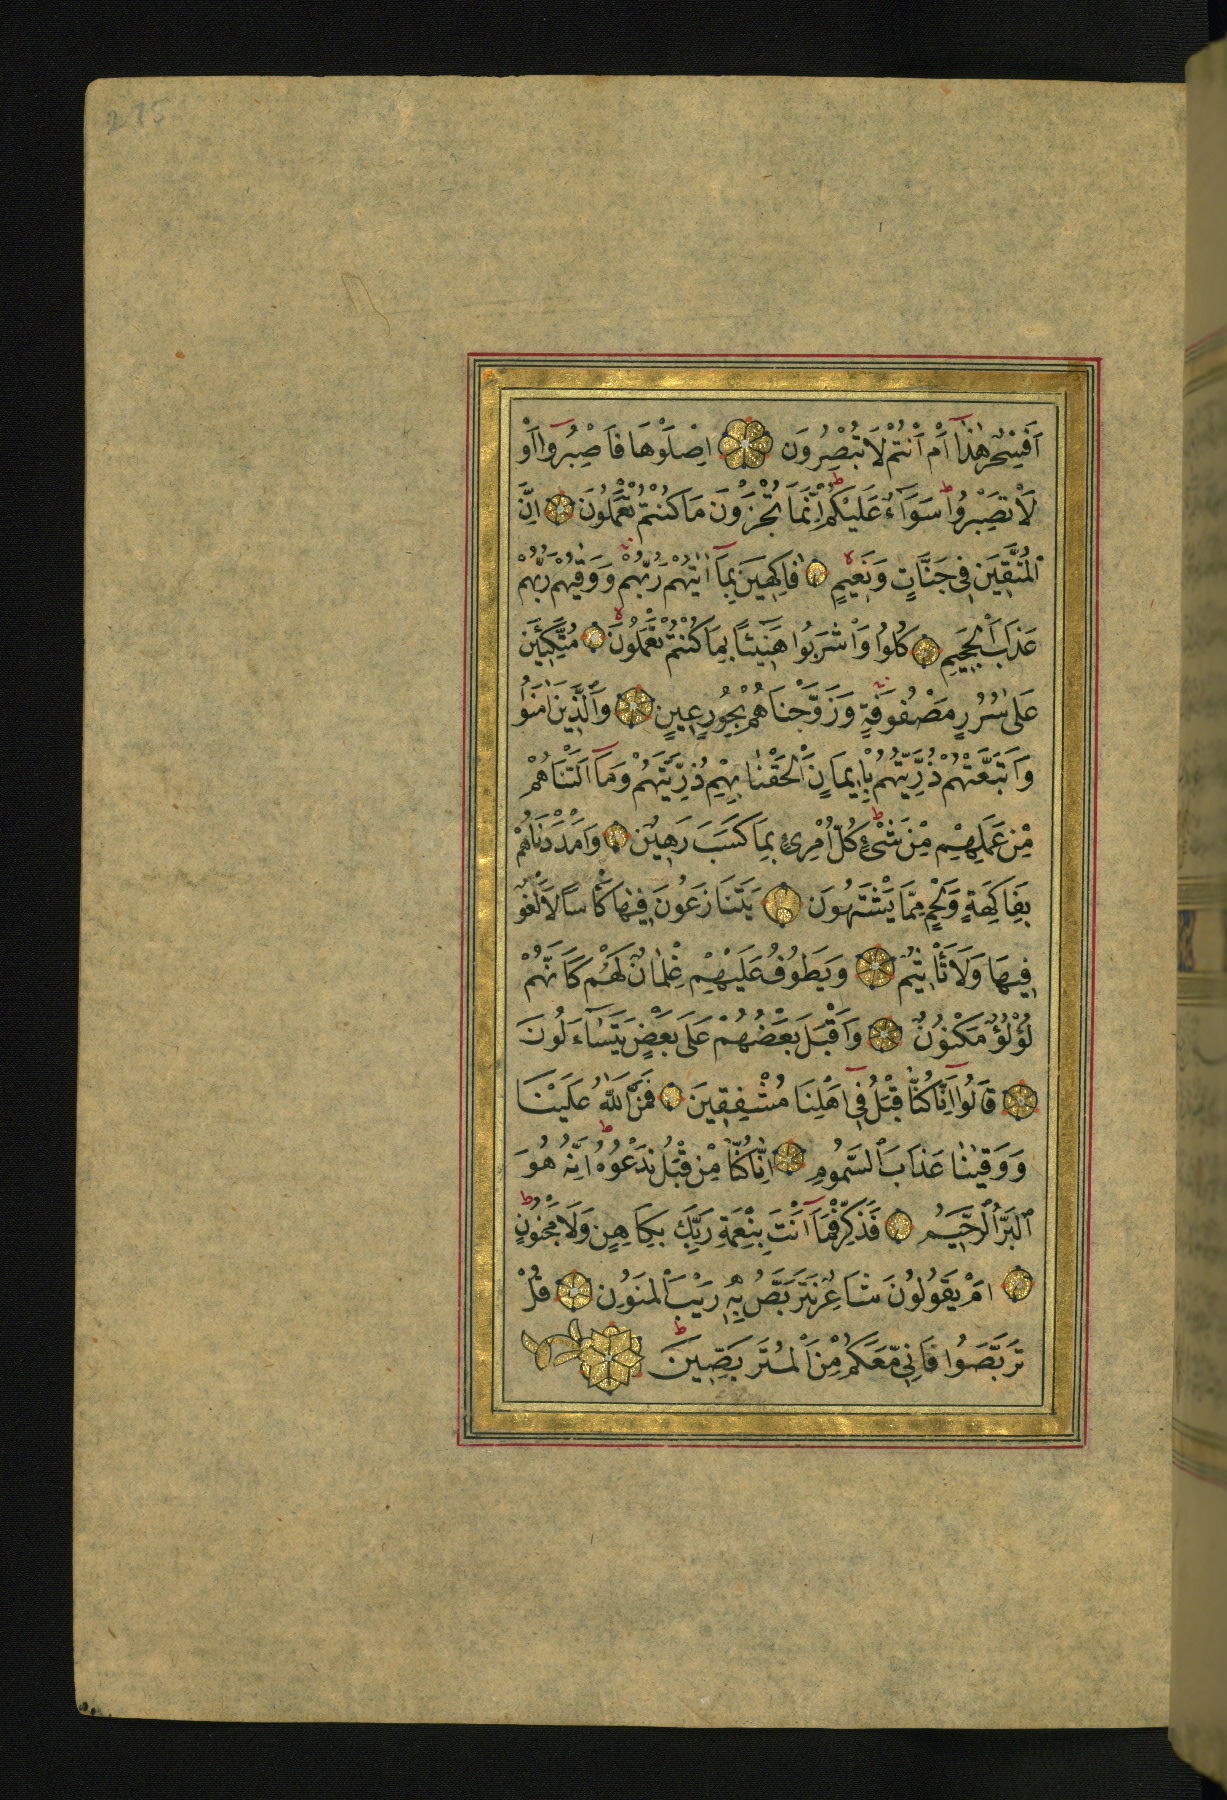 275
اَفَسِحْرٌ هٰذَٓا اَمْ اَنْتُمْ لَا تُبْصِرُونَ اِصْلَوْهَا فَاصْبِرُٓوا اَوْ
لَا تَصْبِرُوا سَوَٓاءٌ عَلَيْكُمْ اِنَّمَا تُجْزَوْنَ مَا كُنْتُمْ تَعْمَلُونَ اِنَّ
الْمُتَّقِينَ فِي جَنَّاتٍ وَنَعِيمٍ فَاكِهِينَ بِمَٓا اٰتٰيهُمْ رَبُّهُمْ وَوَقٰيهُمْ رَبُّهُمْ
عَذَابَ الْجَحِيمِ كُلُوا وَاشْرَبُوا هَنِيئًا بِمَا كُنْتُمْ تَعْمَلُونَ مُتَّكِئِينَ
عَلٰى سُرُرٍ مَصْفُوفَةٍ وَزَوَّجْنَاهُمْ بِحُورٍ عِينٍ وَالَّذِينَ اٰمَنُوا
وَاتَّبَعَتْهُمْ ذُرِّيَّتُهُمْ بِاِيمَانٍ اَلْحَقْنَا بِهِمْ ذُرِّيَّتَهُمْ وَمَٓا اَلَتْنَاهُمْ
مِنْ عَمَلِهِمْ مِنْ شَيْءٍ كُلُّ امْرِئٍ بِمَا كَسَبَ رَهِينٌ وَاَمْدَدْنَاهُمْ
بِفَاكِهَةٍ وَلَحْمٍ مِمَّا يَشْتَهُونَ يَتَنَازَعُونَ فِيهَا كَأْسًا لَا لَغْوٌ
فِيهَا وَلَا تَأْثِيمٌ وَيَطُوفُ عَلَيْهِمْ غِلْمَانٌ لَهُمْ كَاَنَّهُمْ
لُؤْلُؤٌ مَكْنُونٌ وَاَقْبَلَ بَعْضُهُمْ عَلٰى بَعْضٍ يَتَسَٓاءَلُونَ
قَالُٓوا اِنَّا كُنَّا قَبْلُ فِٓي اَهْلِنَا مُشْفِقِينَ فَمَنَّ اللّٰهُ عَلَيْنَا
وَوَقٰينَا عَذَابَ السَّمُومِ اِنَّا كُنَّا مِنْ قَبْلُ نَدْعُوهُ اِنَّهُ هُوَ
الْبَرُّ الرَّحِيمُ فَذَكِّرْ فَمَٓا اَنْتَ بِنِعْمَةِ رَبِّكَ بِكَاهِنٍ وَلَا مَجْنُونٍ
اَمْ يَقُولُونَ شَاعِرٌ نَتَرَبَّصُ بِهِ رَيْبَ الْمَنُونِ قُلْ
تَرَبَّصُوا فَاِنِّي مَعَكُمْ مِنَ الْمُتَرَبِّصِينَ